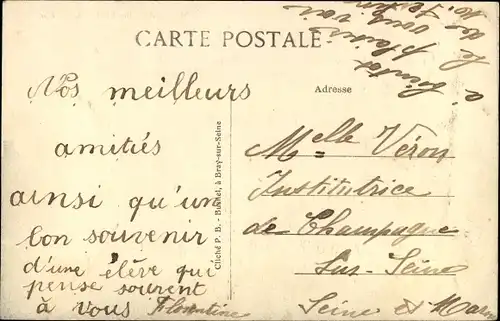 CARTE POSTALE
Nos meilleurs
amitiés
ainsi qu'un
bon souvenir
d'une élève qui
pense souvent
à vous Florentine
Cliché P. B. - à Bray-sur-Seine
Adresse
Melle Véron
Institutrice
de Champagne
Sur-Seine
Seine et Marne
à bientôt
le plaisir
de vous voir